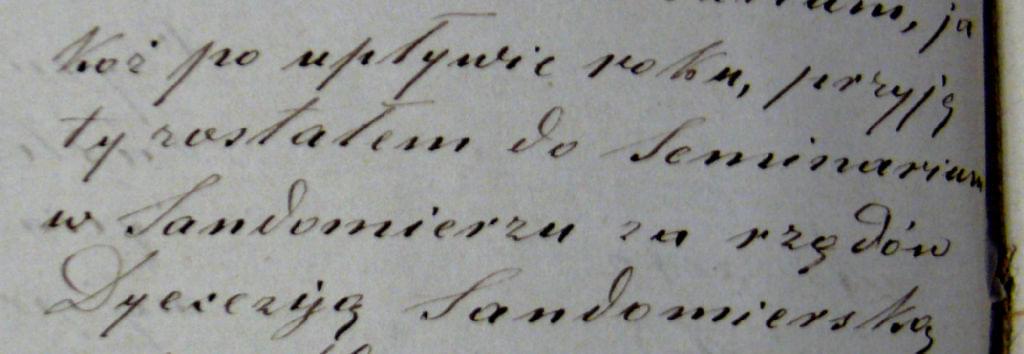 ja
koż po upływie roku, przyję
ty zostałem do Seminarium
w Sandomierzu za rządów
Dyecezyją Sandomierską